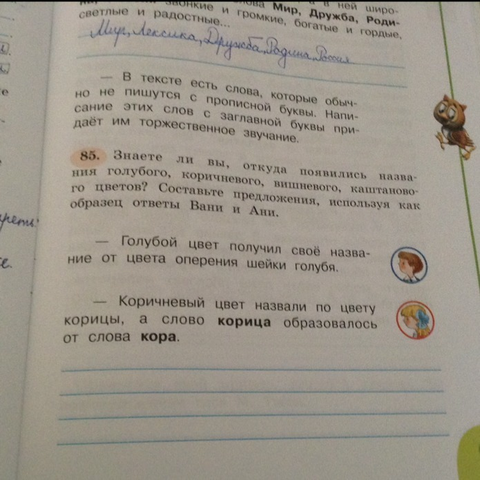 слова Мир, Дружба, Роди-
звонкие и громкие, богатые и гордые,
светлые и радостные...
Мир, Лексика, Дружба, Родина, Россия
— В тексте есть слова, которые обыч-
но не пишутся с прописной буквы. Напи-
сание этих слов с заглавной буквы при-
даёт им торжественное звучание.
85. Знаете ли вы, откуда появились назва-
ния голубого, коричневого, вишневого, каштаново-
го цветов? Составьте предложения, используя как
образец ответы Вани и Ани.
— Голубой цвет получил своё назва-
ние от цвета оперения шейки голубя.
— Коричневый цвет назвали по цвету
корицы, а слово корица образовалось
от слова кора.